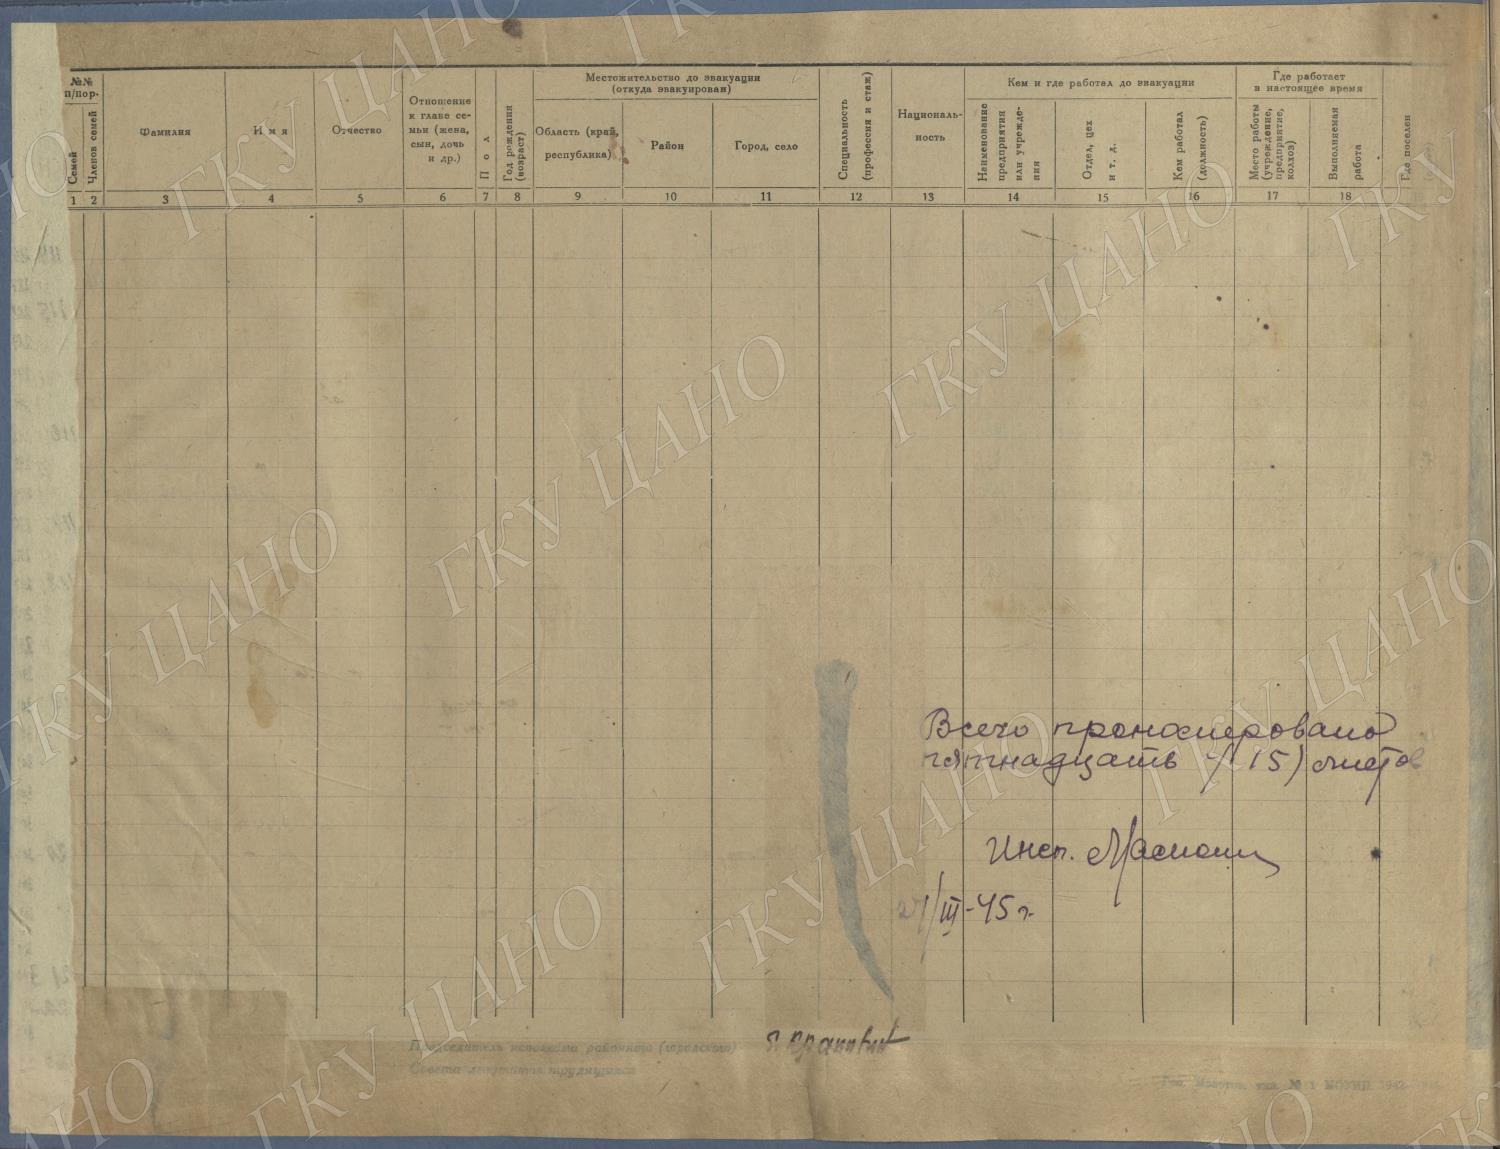 №№ п/пор.
Семей
Членов семей
Фамилия
Имя
Отчество
Отношение к главе семьи (жена, сын, дочь и др.)
Пол
Год рождения (возраст)
Местожительство до эвакуации
(откуда эвакуирован)
Область (край, республика)
Район
Город, село
Специальность (профессия и стаж)
Националь-
ность
Кем и где работал до эвакуации
Наименование предприятия или учреждения
Отдел, цех и т. д.
Кем работал (должность)
Где работает
в настоящее время
Место работы (учреждение, предприятие, колхоз)
Выполняемая работа
Где поселен
1 2 3 4 5 6 7 8 9 10 11 12 13 14 15 16 17 18
Всего пронумеровано
пятнадцать (15) листов
Инсп.
27/III-45 г.
Председатель исполкома районного (городского)
Совета депутатов трудящихся
ГКУ ЦАНО